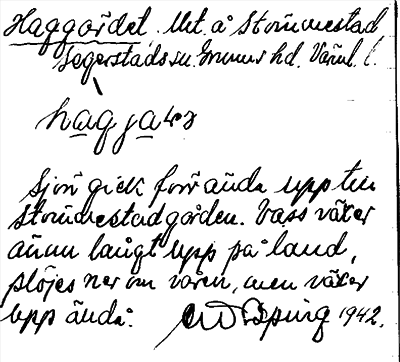 Haggärdet. Utt. å Strömmestad,
Segerstads sn. Grums hd. Värml. l.
hagjaɽɜ
Sjön gick förr ända upp till
Strömmestadgården. Vass växer
ännu långt upp på land,
slöjes ner om våren, men växer
upp ändå. 1942.